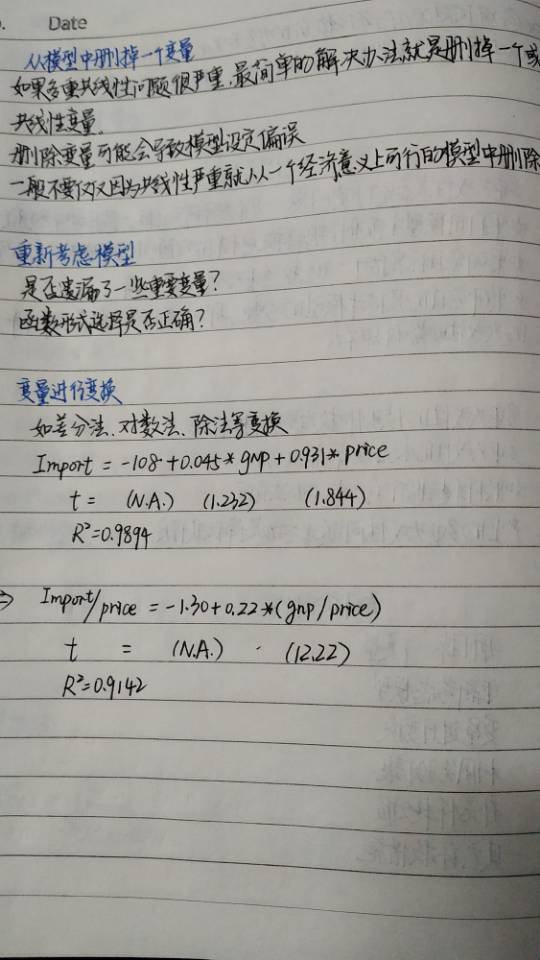 Date
从模型中删掉一个变量
如果多重共线性问题很严重,最简单的解决办法就是删掉一个或
共线性变量.
删除变量可能会导致模型设定偏误
一般不要仅仅因为共线性严重就从一个经济意义上可行的模型中删除
重新考虑模型
是否遗漏了一些重要变量?
函数形式选择是否正确?
变量进行变换
如差分法、对数法、除法等变换
Import = -108 + 0.045* gnp + 0.931* price
t = (N.A.) (1.232) (1.844)
R²=0.9894
⇒ Import/price = -1.30+0.22*(gnp/price)
t = (N.A.) (12.22)
R²=0.9142